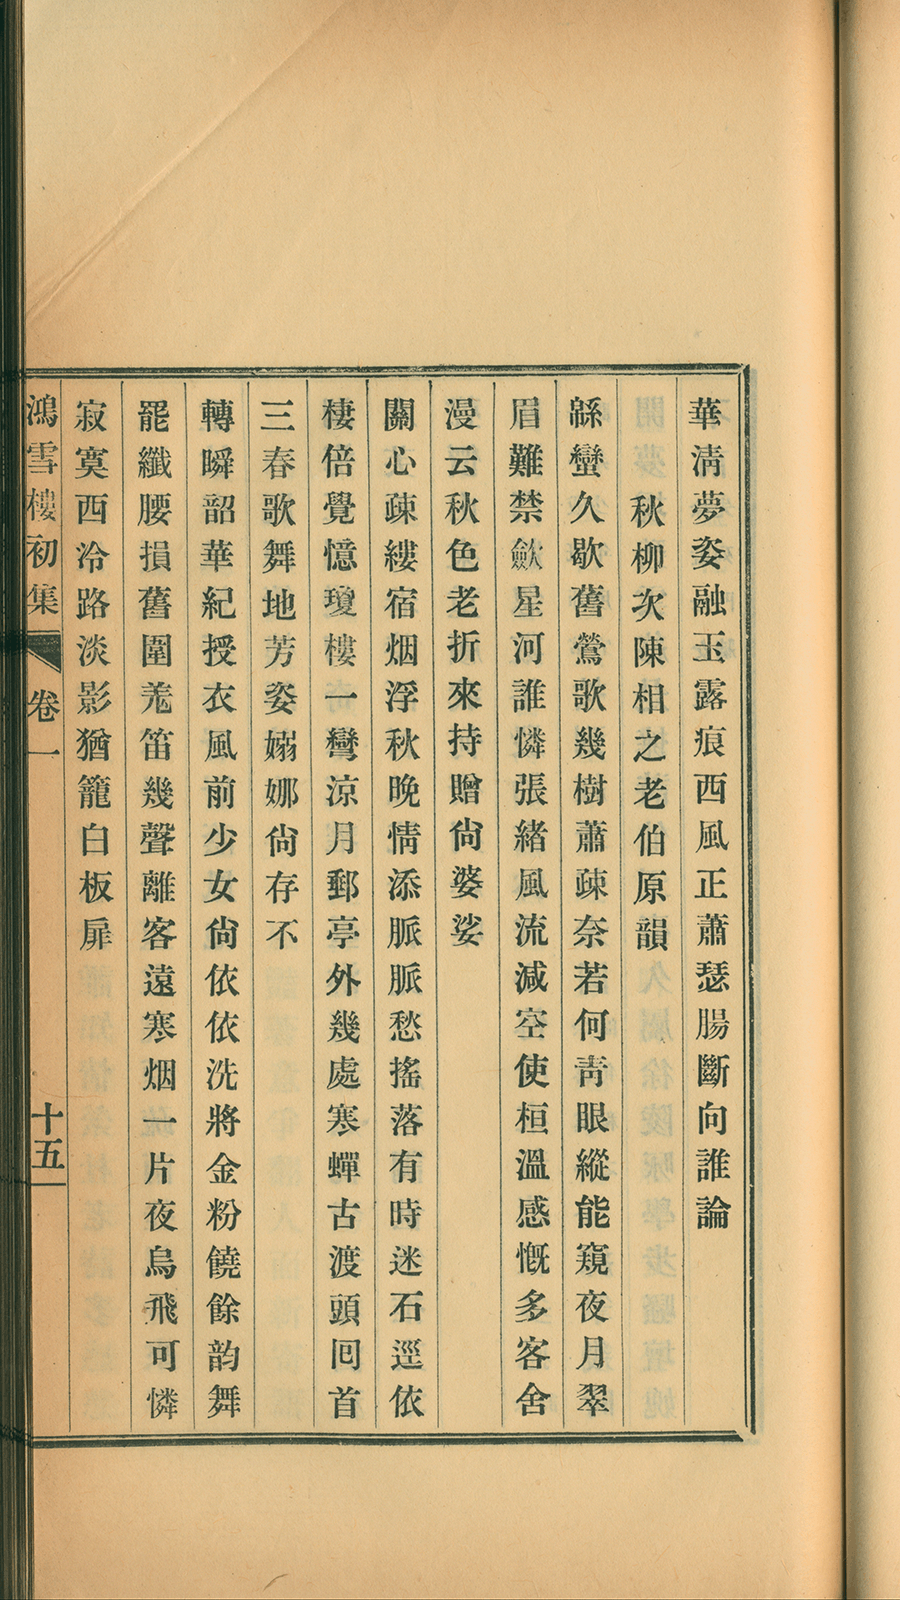 華清夢姿融玉露痕西風正蕭瑟腸斷向誰論
秋柳次陳相之老伯原韻
緜蠻久歇舊鶯歌幾樹蕭疎奈若何靑眼縱能窺夜月翠
眉難禁歛星河誰憐張緒風流減空使桓溫感慨多客舍
漫云秋色老折來持贈尙婆娑
關心疎縷宿烟浮秋晚情添脈脈愁搖落有時迷石逕依
棲倍覺憶瓊樓一彎涼月郵亭外幾處寒蟬古渡頭回首
三春歌舞地芳姿嫋娜尙存不
轉瞬韶華紀授衣風前少女尙依依洗將金粉饒餘韵舞
罷纖腰損舊圍羗笛幾聲離客遠寒烟一片夜烏飛可憐
寂寞西泠路淡影猶籠白板扉
鴻雪樓初集 卷一 十五